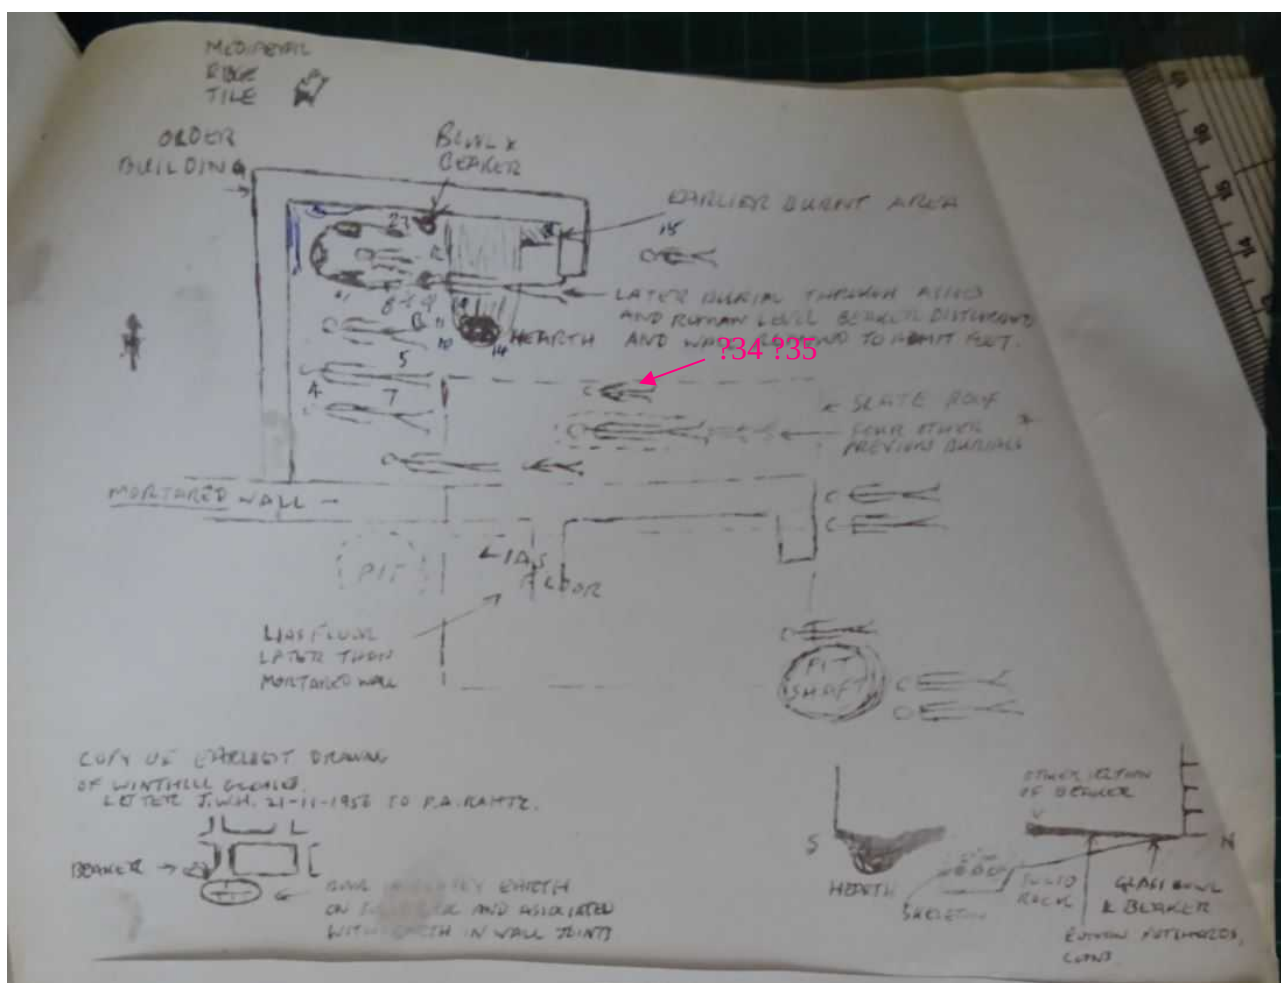 MEDIAEVAL
RIDGE
TILE
ORDER
BUILDING
BOWL &
BEAKER
EARLIER BURNT AREA
15
27
12
11
8
9
11
10
14
HEARTH
LATER BURIAL THROUGH
AND ROMAN LEVEL BEAKER DISTURBED
AND WALL TO ADMIT FEET.
?34 ?35
5
4
7
SLATE ROOF
FOUR OTHER
PREVIOUS BURIALS
MORTARED WALL
PIT
LIAS
FLOOR
LIAS FLOOR
LATER THAN
MORTARED WALL
PIT
SHAFT
COPY OF EARLIEST DRAWING
OF WINTHILL
LETTER J.W.H. 21-11-1956 TO P.A.RAHTZ.
BEAKER
EARTH
ON AND ASSOCIATED
WITH EARTH IN WALL JOINTS
S
HEARTH
SKELETON
SOLID
ROCK
OTHER SECTION
OF BEAKER
N
GLASS BOWL
& BEAKER
ROMAN POTSHERDS,
COINS
16
15
14